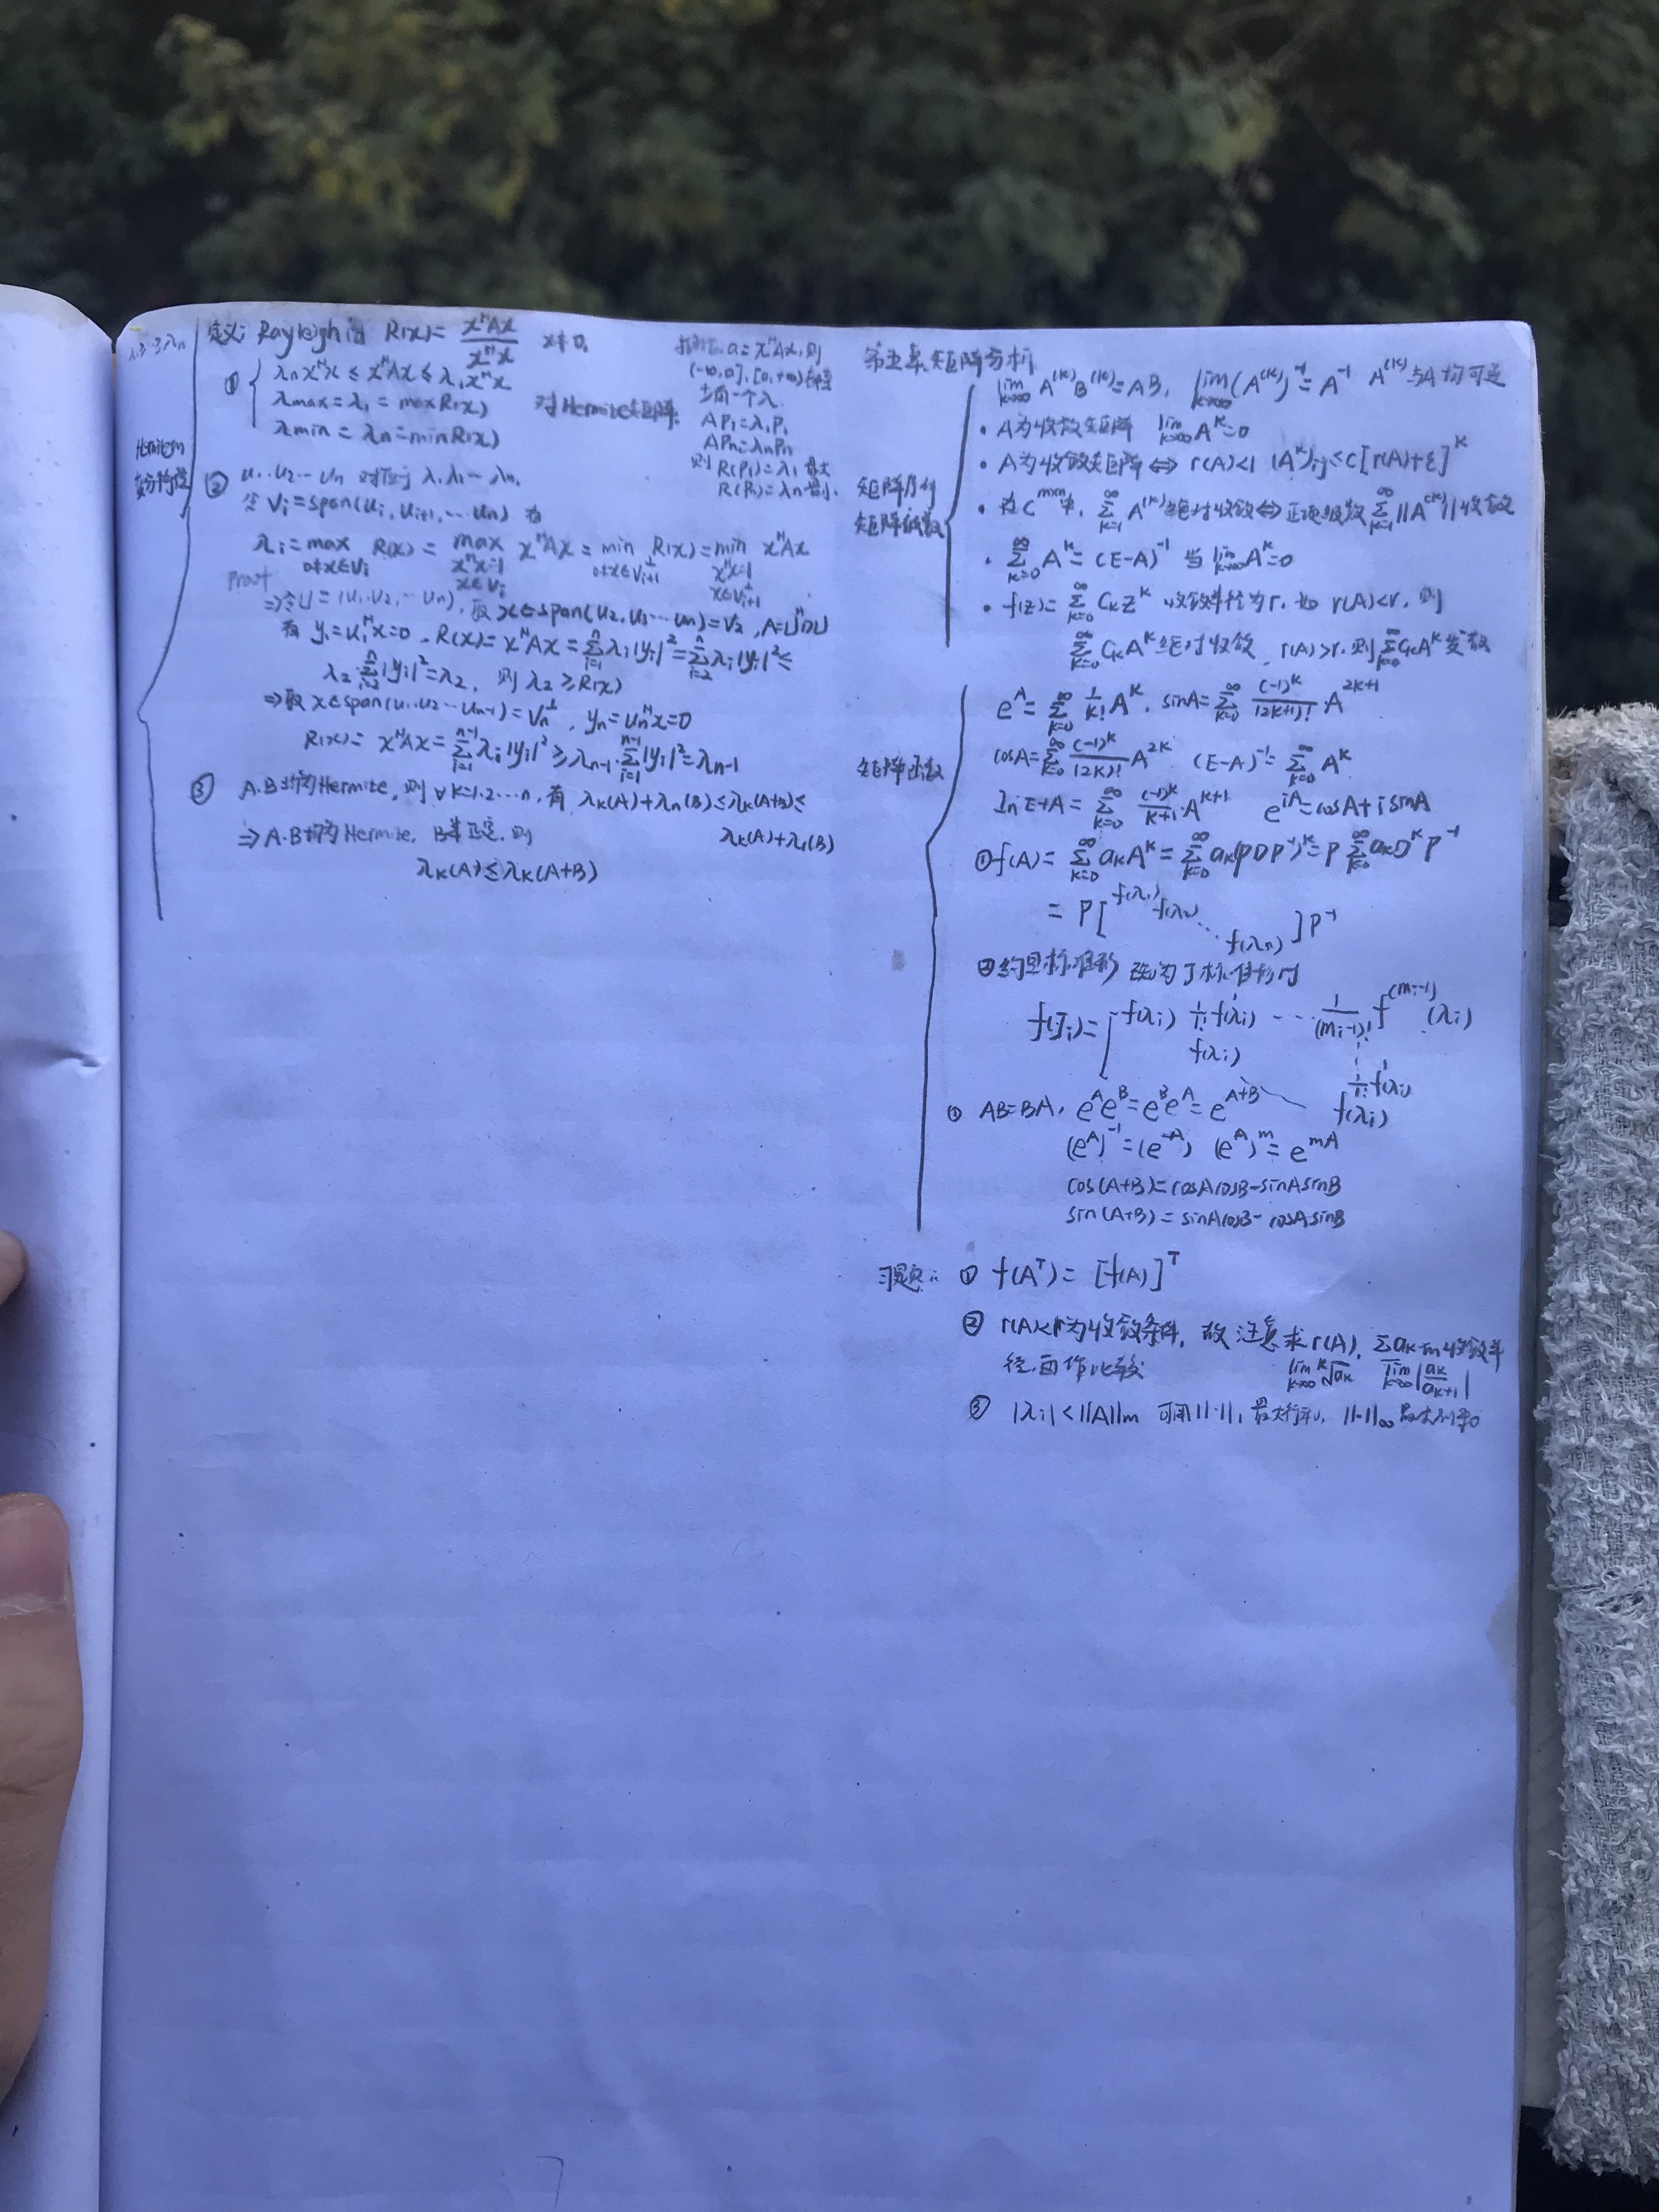 λ₁≥…≥λn
定义: Rayleigh商 R(x)= x^H A x / x^H x x≠0.
① λn x^H x ≤ x^H A x ≤ λ₁ x^H x
λmax = λ₁ = max R(x)
λmin = λn = min R(x)
对Hermite矩阵.
a = x^H A x, 则
(-∞,a], [a,+∞)
少有一个λ
AP₁=λ₁P₁
APn=λnPn
则 R(P₁)=λ₁ 最大
R(Pn)=λn 最小.
② u₁·u₂…un 对应于 λ₁ λ₂…λn.
令 Vi=span(ui, ui+1,…un) 有
λi = max_{0≠x∈Vi} R(x) = max_{x^H x=1, x∈Vi} x^H A x = min_{0≠x∈V_{i+1}^⊥} R(x) = min_{x^H x=1, x∈V_{i+1}^⊥} x^H A x
Proof
⇒令U=(u₁·u₂,…un), 取 x∈span(u₂, u₃…un)=V₂, A=U^H D U
有 y₁=u₁^H x=0, R(x)=x^H A x = Σ_{i=1}^{n} λi|yi|² = Σ_{i=2}^{n} λi|yi|² ≤
λ₂·Σ_{i=2}^{n}|yi|²=λ₂, 则 λ₂≥R(x)
⇒取 x∈span(u₁·u₂…un-1)=Vn^⊥, yn=un^H x=0
R(x)= x^H A x = Σ_{i=1}^{n-1} λi|yi|² ≥ λn-1·Σ_{i=1}^{n-1}|yi|² = λn-1
③ A.B均为Hermite, 则 ∀k=1.2…n, 有 λk(A)+λn(B)≤λk(A+B)≤
λk(A)+λ₁(B)
⇒A.B均为Hermite, B半正定, 则
λk(A)≤λk(A+B)
第五章 矩阵分析
矩阵序列
矩阵级数
lim_{k→∞} A^(k)B^(k)=AB, lim_{k→∞}(A^(k))^-1=A^-1 A^(k)与A均可逆
· A为收敛矩阵 lim_{k→∞} A^k=0
· A为收敛矩阵 ⇔ r(A)<1 (A^k)ij≤c[r(A)+ε]^k
· 在C^{m×n}中, Σ_{k=1}^{∞} A^(k)绝对收敛⇔正项级数 Σ_{k=1}^{∞}||A^(k)||收敛
· Σ_{k=0}^{∞} A^k=(E-A)^-1 当 lim_{k→∞}A^k=0
· f(z)= Σ_{k=0}^{∞} Ck z^k 收敛半径为r. 如 r(A)<r, 则
Σ_{k=0}^{∞} CkA^k 绝对收敛, r(A)>r, 则 Σ_{k=0}^{∞} CkA^k 发散
矩阵函数
e^A= Σ_{k=0}^{∞} 1/k! A^k, sinA= Σ_{k=0}^{∞} (-1)^k/(2k+1)! A^{2k+1}
cosA= Σ_{k=0}^{∞} (-1)^k/(2k)! A^{2k} (E-A)^-1= Σ_{k=0}^{∞} A^k
ln E+A = Σ_{k=0}^{∞} (-1)^k/(k+1) A^{k+1} e^{iA}=cosA+isinA
① f(A)= Σ_{k=0}^{∞} akA^k= Σ_{k=0}^{∞} ak(PDP^-1)^k= P Σ_{k=0}^{∞} akD^k P^-1
= P[ f(λ₁) f(λ₂) ⋱ f(λn) ]P^-1
②约旦标准形 J标准形时
f(Ji)=[ f(λi) 1/1! f'(λi) … 1/(mi-1)! f^(mi-1)(λi)
f(λi)
1/1! f'(λi)
f(λi)
① AB=BA, e^A e^B=e^B e^A=e^{A+B}
(e^A)^-1=(e^-A) (e^A)^m=e^{mA}
cos(A+B)=cosAcosB-sinAsinB
sin(A+B)=sinAcosB-cosAsinB
习题: ① f(A^T)=[f(A)]^T
② r(A)<r为收敛条件, 故 注意求r(A), Σak 收敛半
径, 再作比较 lim_{k→∞} ᵏ√ak lim_{k→∞}|ak/ak+1|
③ |λi|<||A||m 可用||·||₁ 最大行和, ||·||∞ 最大列和